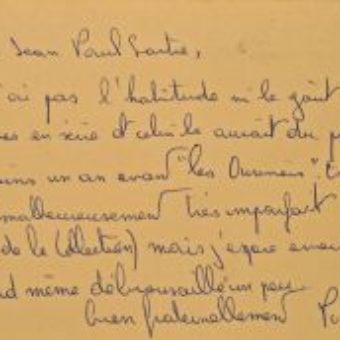 Jean Paul Sartre,
ai pas l'habitude ni le goût
es en série et celui-là aurait du p
ins un an avan "les Ouraniens".
malheureusement très imparfait
de la collection) mais j'espère
d même débroussaillé un peu
bien fraternellement